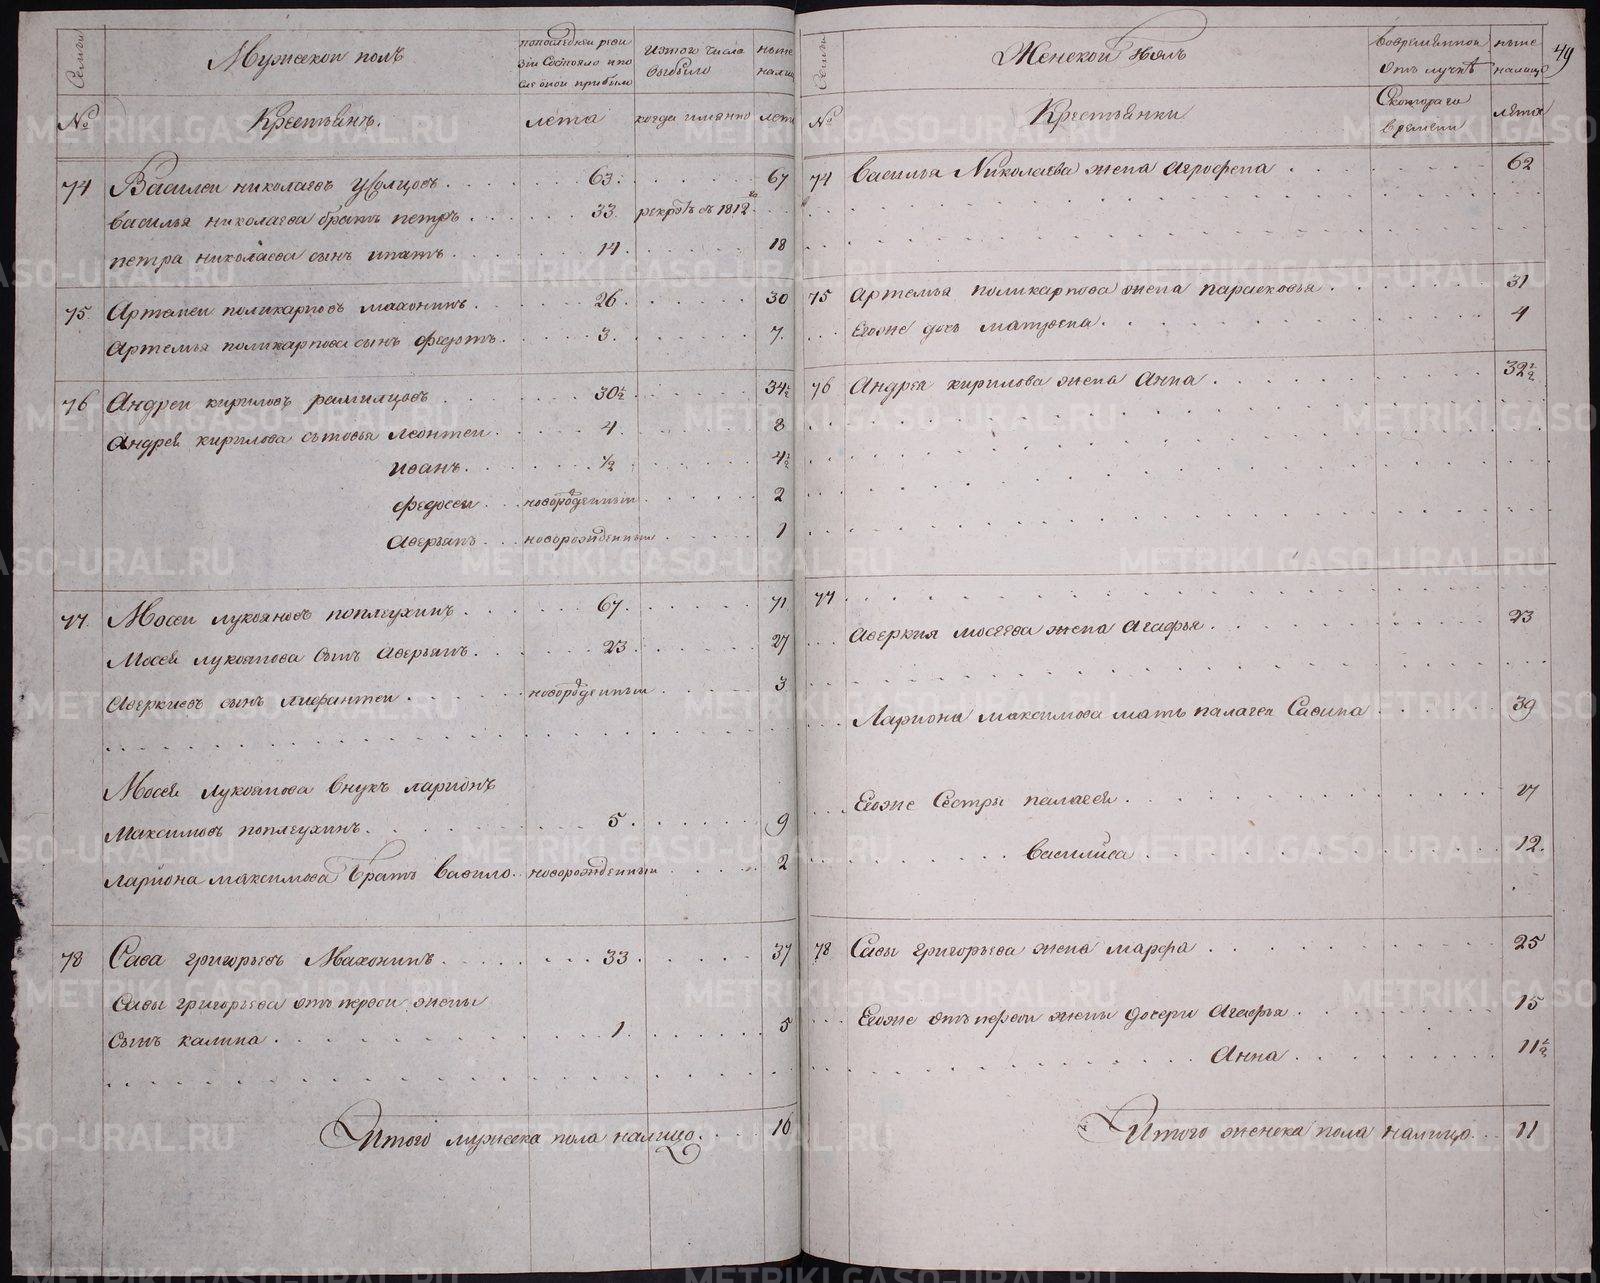 Семьи
Мужескои полъ
попоследнеи реви
зіи Состояло ипо
сле онои прибыло
Изтого числа
выбыло
ныне
налицо
№
Крестьянъ.
лета
когда имянно
лета
74 Василеи николаевъ 63. 67
василья николаева братъ петръ 33. рекрутъ съ 1812
петра николаева сынъ ипатъ 14. 18
75 Артемеи поликарповъ махонинъ 26. 30
Артемья поликарпова сынъ федотъ 3. 7.
76 Андреи кириловъ рамилцовъ 30½ 34½
Андрея кирилова сыновья леонтеи 4. 8
иванъ ½ 4½
федосеи новорожденныи 2
аверьянъ новорожденныи 1
77. Мосеи лукояновъ поплеухинъ 67. 71
Мосея лукоянова сынъ аверьянъ 23 27
аверкиевъ сынъ лифантеи новорожденныи 3
Мосея лукоянова внукъ ларионъ
Максимовъ поплеухинъ 5. 9
Лариона максимова братъ вавило новорожденныи 2
78 Сава григорьевъ Махонинъ 33 37
Савы григорьева отъ первои жены
сынъ калина 1. 5
Итого мужеска пола налицо 16
49
Семьи
Женскои полъ
Вовременнои
отълучкѣ
ныне
налицо
№
Крестьянки
Скотораго
времени
летах
74 василья Николаева жена агрофена 62
75 Артемья поликарпова жена парасковья 31
Евоже дочь матрена 4
76 Андрея кирилова жена Анна 32½
77
аверкия мосеева жена агафья 23
Лариона максимова мать палагея Савина 39
Евоже Сестры палагея 17
василиса 12.
78 Савы григорьева жена марфа 25
Евоже отъ первои жены дочери агафья 15
Анна 11½
Итого женска пола налицо 11
METRIKI.GASO-URAL.RU